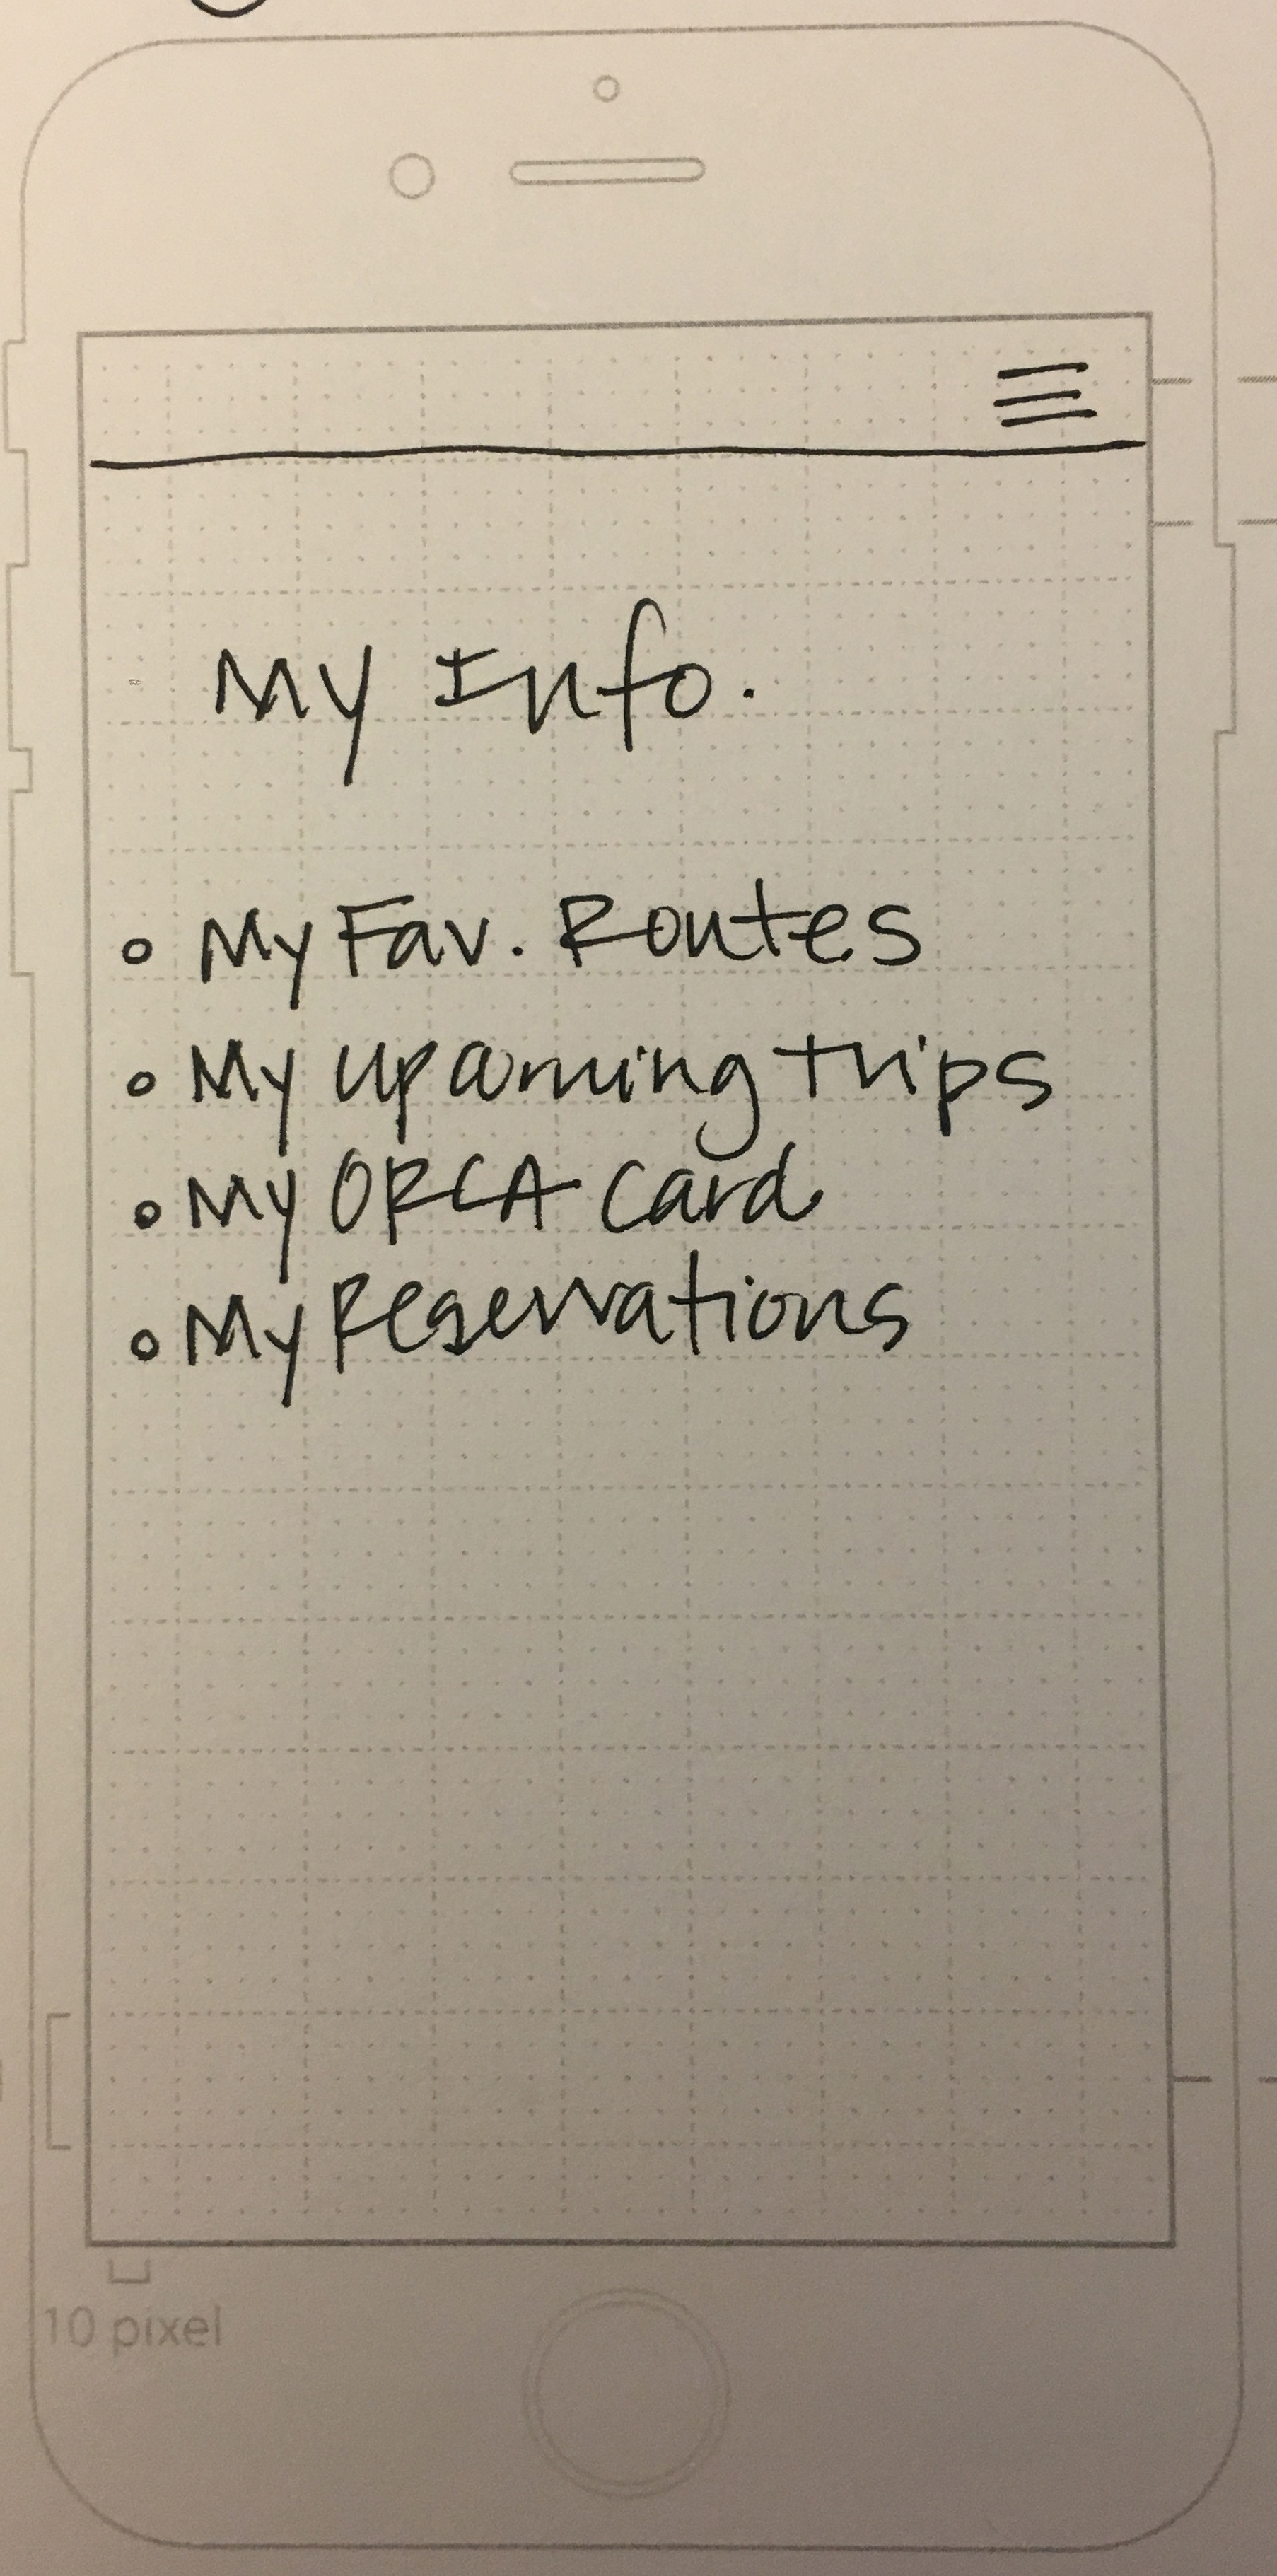 My Info.
My Fav. Routes
My upcoming trips
My ORCA card
My Reservations
10 pixel